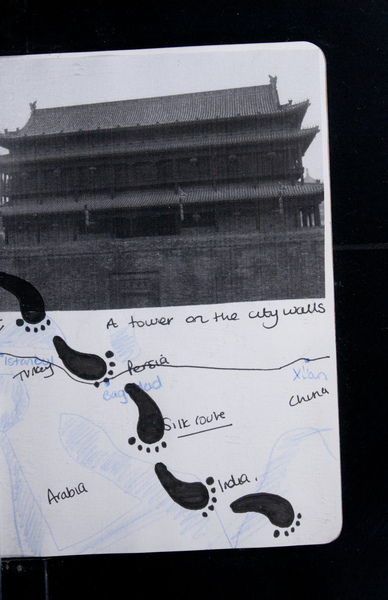 A tower on the city walls
Istanbul
Turkey
Persia
Baghdad
Xi'an
China
Silk route
Arabia
India.